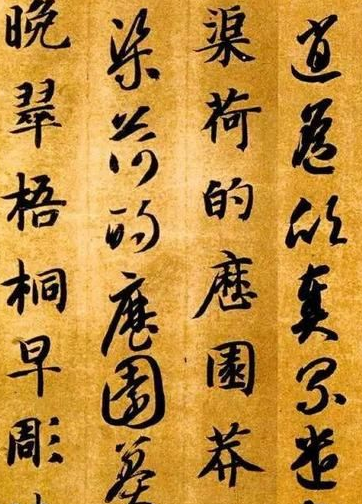 逍遙欣奏累遣
渠荷的歷園莽
渠荷的歷園莽
晚翠梧桐早彫